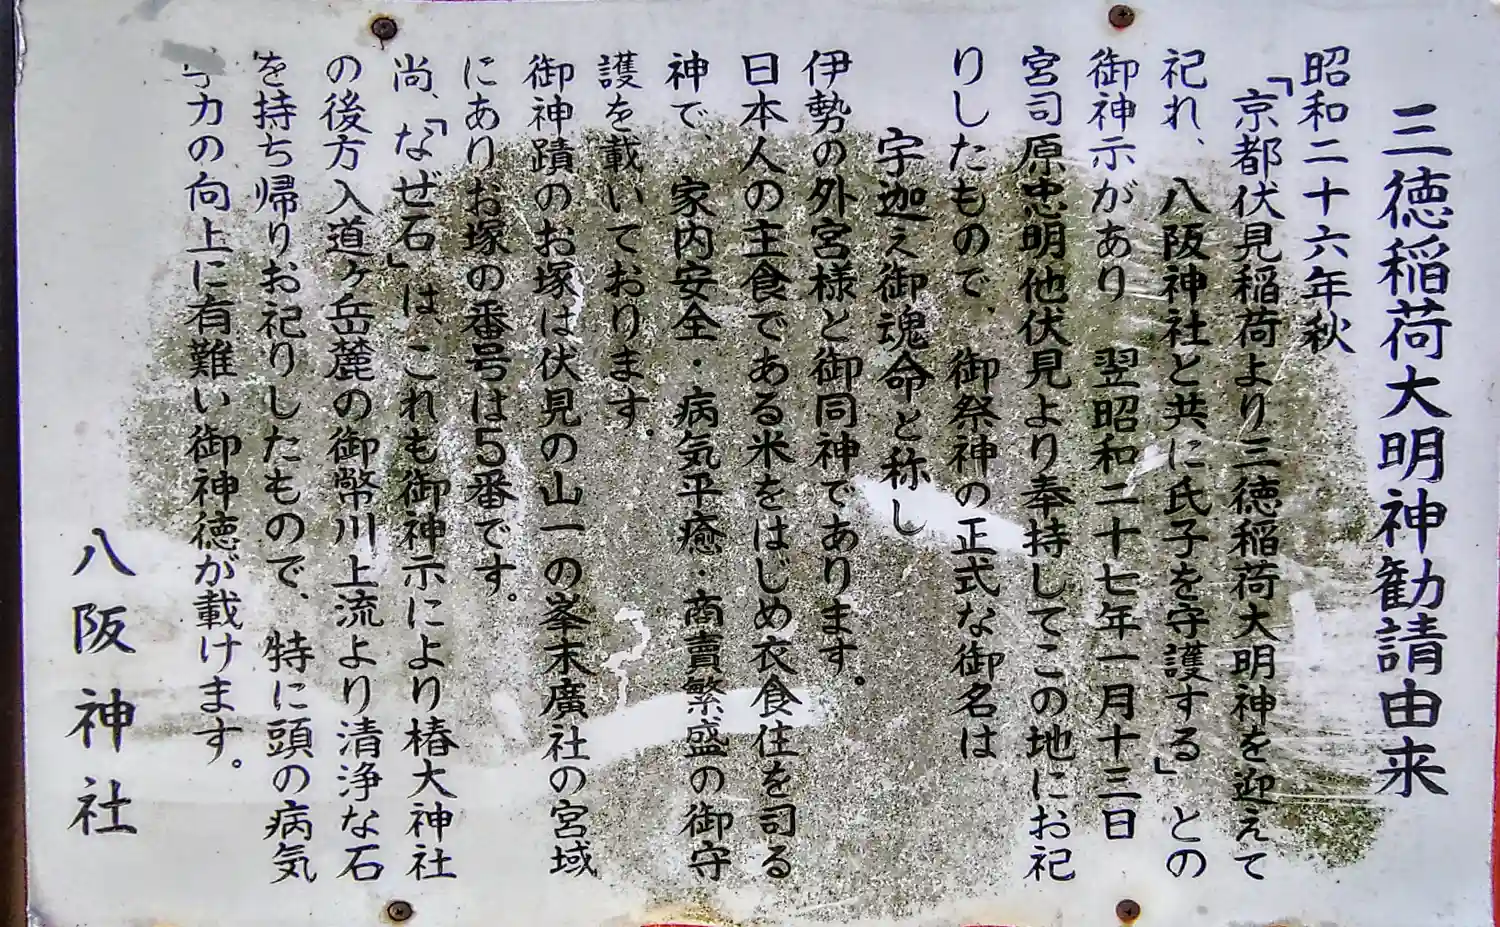 三徳稲荷大明神勧請由来
昭和二十六年秋
「京都伏見稲荷より三徳稲荷大明神を迎えて
祀れ、八阪神社と共に氏子を守護する」との
御神示があり 翌昭和二十七年一月十三日
宮司原忠明他伏見より奉持してこの地にお祀
りしたもので、御祭神の正式な御名は
宇迦え御魂命と称し
伊勢の外宮様と御同神であります。
日本人の主食である米をはじめ衣食住を司る
神で、家内安全・病気平癒・商賣繁盛の御守
護を載いております。
御神蹟のお塚は伏見の山一の峯末廣社の宮域
にありお塚の番号は5番です。
尚、「なぜ石」は、これも御神示により椿大神社
の後方入道ヶ岳麓の御幣川上流より清浄な石
を持ち帰りお祀りしたもので、特に頭の病気
力の向上に有難い御神徳が載けます。
八阪神社